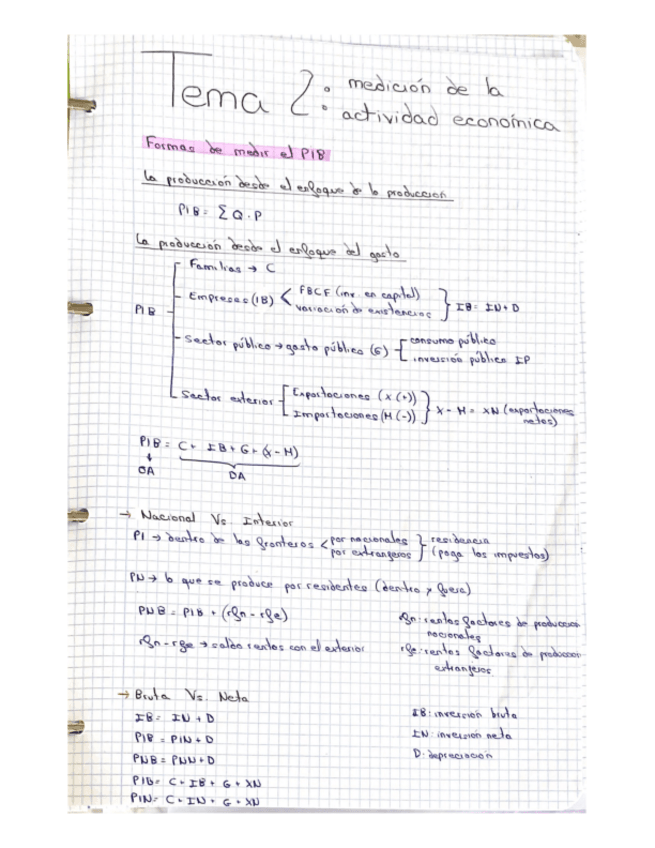 Tema 2: medición de la
actividad económica
Formas de medir el PIB
La producción desde el enfoque de la producción
PIB = Σ Q · P
La producción desde el enfoque del gasto
PIB
Familias → C
Empresas (IB) < FBCF (inv. en capital)
variación de existencias } IB = IN + D
Sector público → gasto público (G) [ consumo público
inversión pública IP
Sector exterior [ Exportaciones (X (+))
Importaciones (M (-)) } X - M = XN (exportaciones
netas)
PIB = C + IB + G + (X - M)
↓
OA
DA
→ Nacional Vs Interior
PI → dentro de las fronteras < por nacionales } residencia
por extranjeros } (paga los impuestos)
PN → lo que se produce por residentes (dentro y fuera)
PNB = PIB + (rfn - rfe)
rfn: rentas factores de produccion
nacionales
rfn - rfe → saldo rentas con el exterior
rfe: rentas factores de produccion
extranjeros
→ Bruta Vs. Neta
IB = IN + D
IB: inversión bruta
PIB = PIN + D
IN: inversión neta
PNB = PNN + D
D: depreciación
PIB = C + IB + G + XN
PIN = C + IN + G + XN